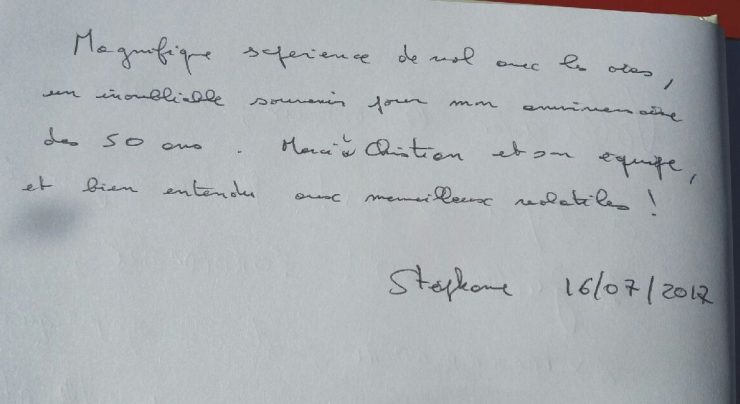 Magnifique expérience de vol avec les oies,
un inoubliable souvenir pour mon anniversaire
des 50 ans. Merci à Christian et son équipe,
et bien entendu aux merveilleux volatiles !
Stéphane 16/07/2017